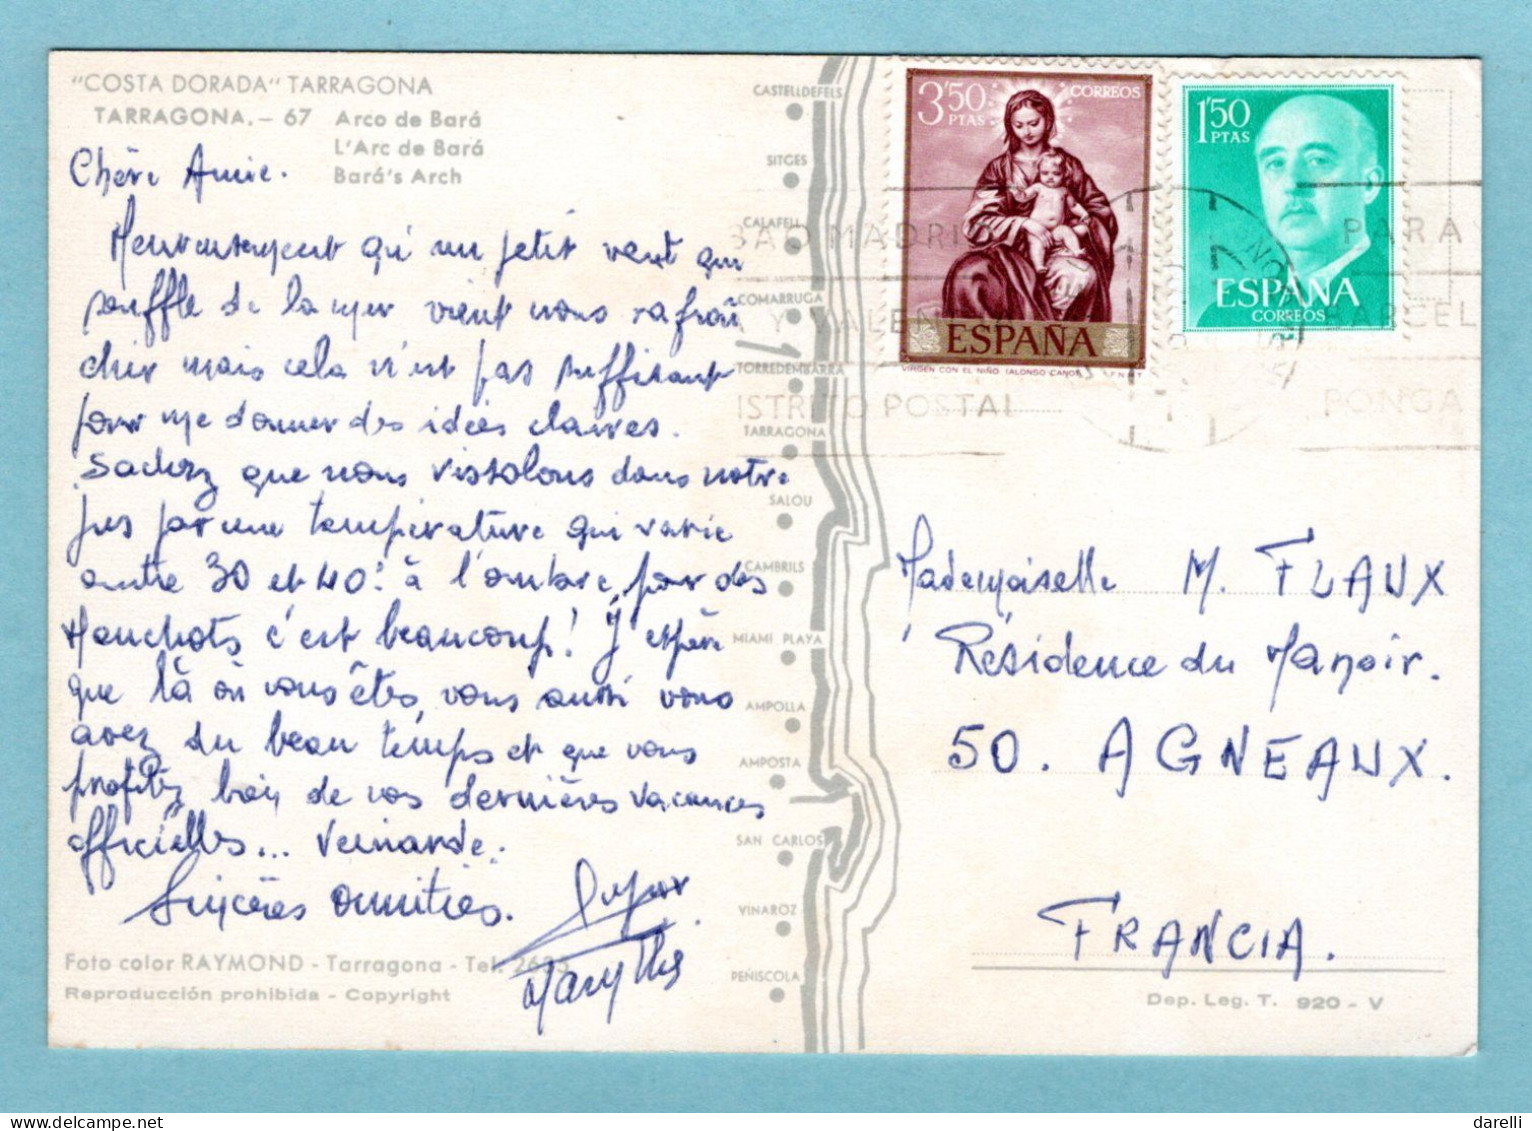 "COSTA DORADA" TARRAGONA
TARRAGONA. - 67 Arco de Bará
L'Arc de Bará
Bará's Arch
Chère Amie.
Heureusement qu'un petit vent qui
souffle de la mer vient nous rafraî
chir mais cela n'est pas suffisant
pour me donner des idées claires.
Sachez que nous rissolons dans notre
jus par une température qui varie
entre 30 et 40° à l'ombre, pour des
Manchots c'est beaucoup! J'espère
que là où vous êtes, vous aussi vous
avez du beau temps et que vous
profitez bien de vos dernières vacances
officielles... Veinarde.
Sincères amitiés.
Foto color RAYMOND - Tarragona - Tel.
Reproducción prohibida - Copyright
CASTELLDEFELS
SITGES
CALAFELL
COMARRUGA
TORREDEMBARRA
TARRAGONA
SALOU
CAMBRILS
MIAMI PLAYA
AMPOLLA
AMPOSTA
SAN CARLOS
VINAROZ
PEÑISCOLA
3'50 PTAS CORREOS
ESPAÑA
VIRGEN CON EL NIÑO (ALONSO CANO)
1'50 PTAS
ESPAÑA
CORREOS
MADRID
DISTRITO POSTAL
PARA
BARCEL
PONGA
Mademoiselle M. FLAUX
Résidence du Manoir.
50. AGNEAUX.
FRANCIA.
Dep. Leg. T. 920 - V
darelli